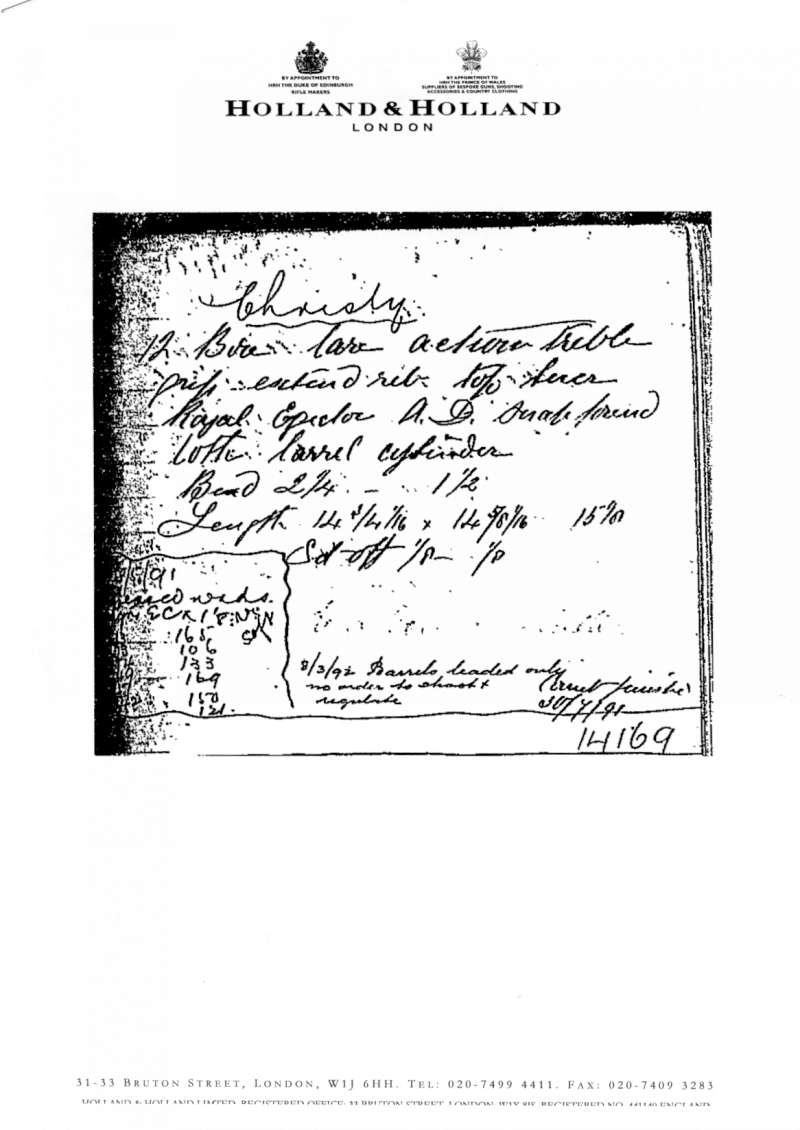 BY APPOINTMENT TO
HRH THE DUKE OF EDINBURGH
RIFLE MAKERS
BY APPOINTMENT TO
HRH THE PRINCE OF WALES
SUPPLIERS OF BESPOKE GUNS, SHOOTING
ACCESSORIES & COUNTRY CLOTHING
HOLLAND & HOLLAND
LONDON
Christy
12 Bore bar action treble
grip extend rib top lever
Royal Ejector A.D. snap forend
both barrel cylinder
Bend 2 1/4 - 1 1/2
Length 14 3/4 1/16 x 14 5/8 1/16 15 1/8
Cd off 1/8 - 1/8
/5/91
wads.
EC x 1 1/8
165
106
133
169
150
121.
8/3/92 Barrels leaded only
no order to shoot &
regulate
finisher
30/7/91
14169
31-33 BRUTON STREET, LONDON, W1J 6HH. TEL: 020-7499 4411. FAX: 020-7409 3283
HOLLAND & HOLLAND LIMITED. REGISTERED OFFICE: 33 BRUTON STREET, LONDON, W1X 8JS. REGISTERED NO. 441140 ENGLAND